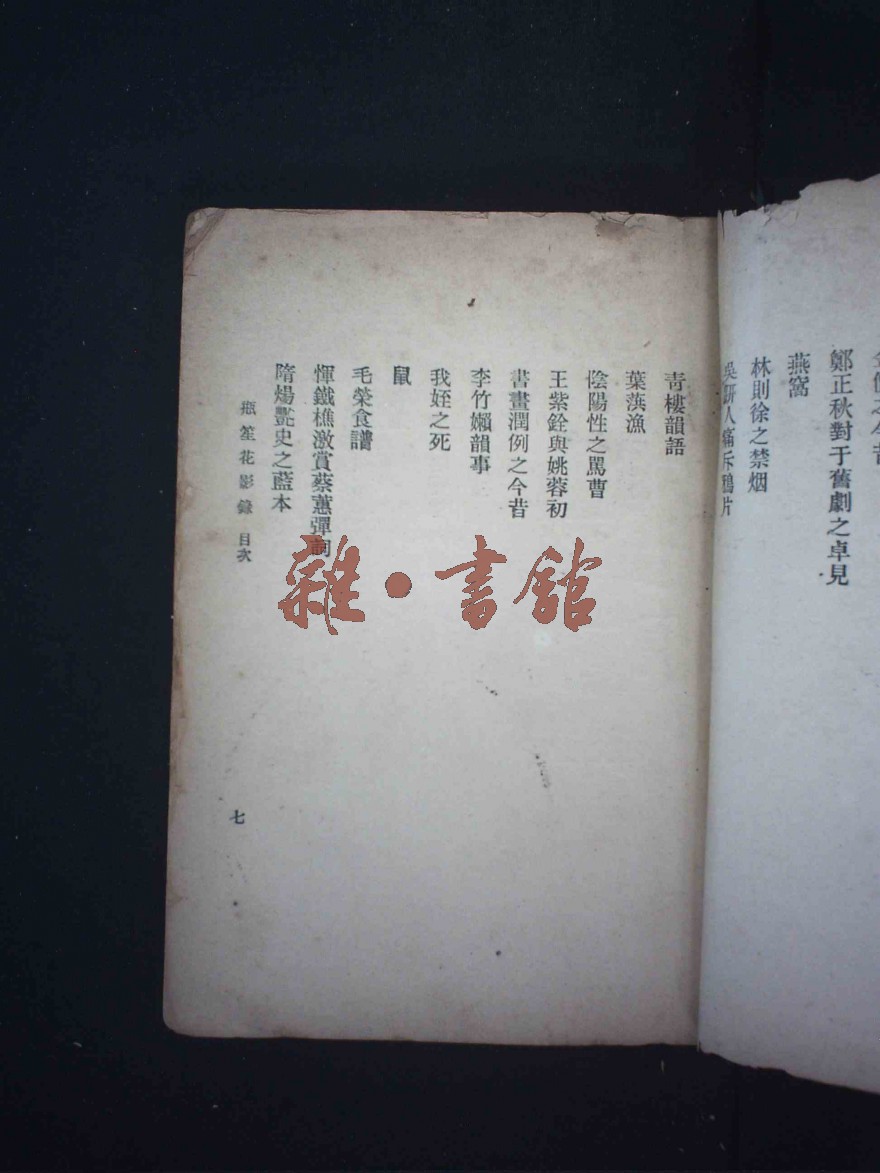 之今昔
鄭正秋對于舊劇之卓見
燕窩
林則徐之禁烟
吳趼人痛斥鴉片
青樓韻語
葉葓漁
陰陽性之罵曹
王紫銓與姚蓉初
書畫潤例之今昔
李竹嬾韻事
我姪之死
鼠
毛榮食譜
惲鐵樵激賞蔡蕙彈詞
隋煬艷史之藍本
瓶笙花影錄 目次
七
雜·書館